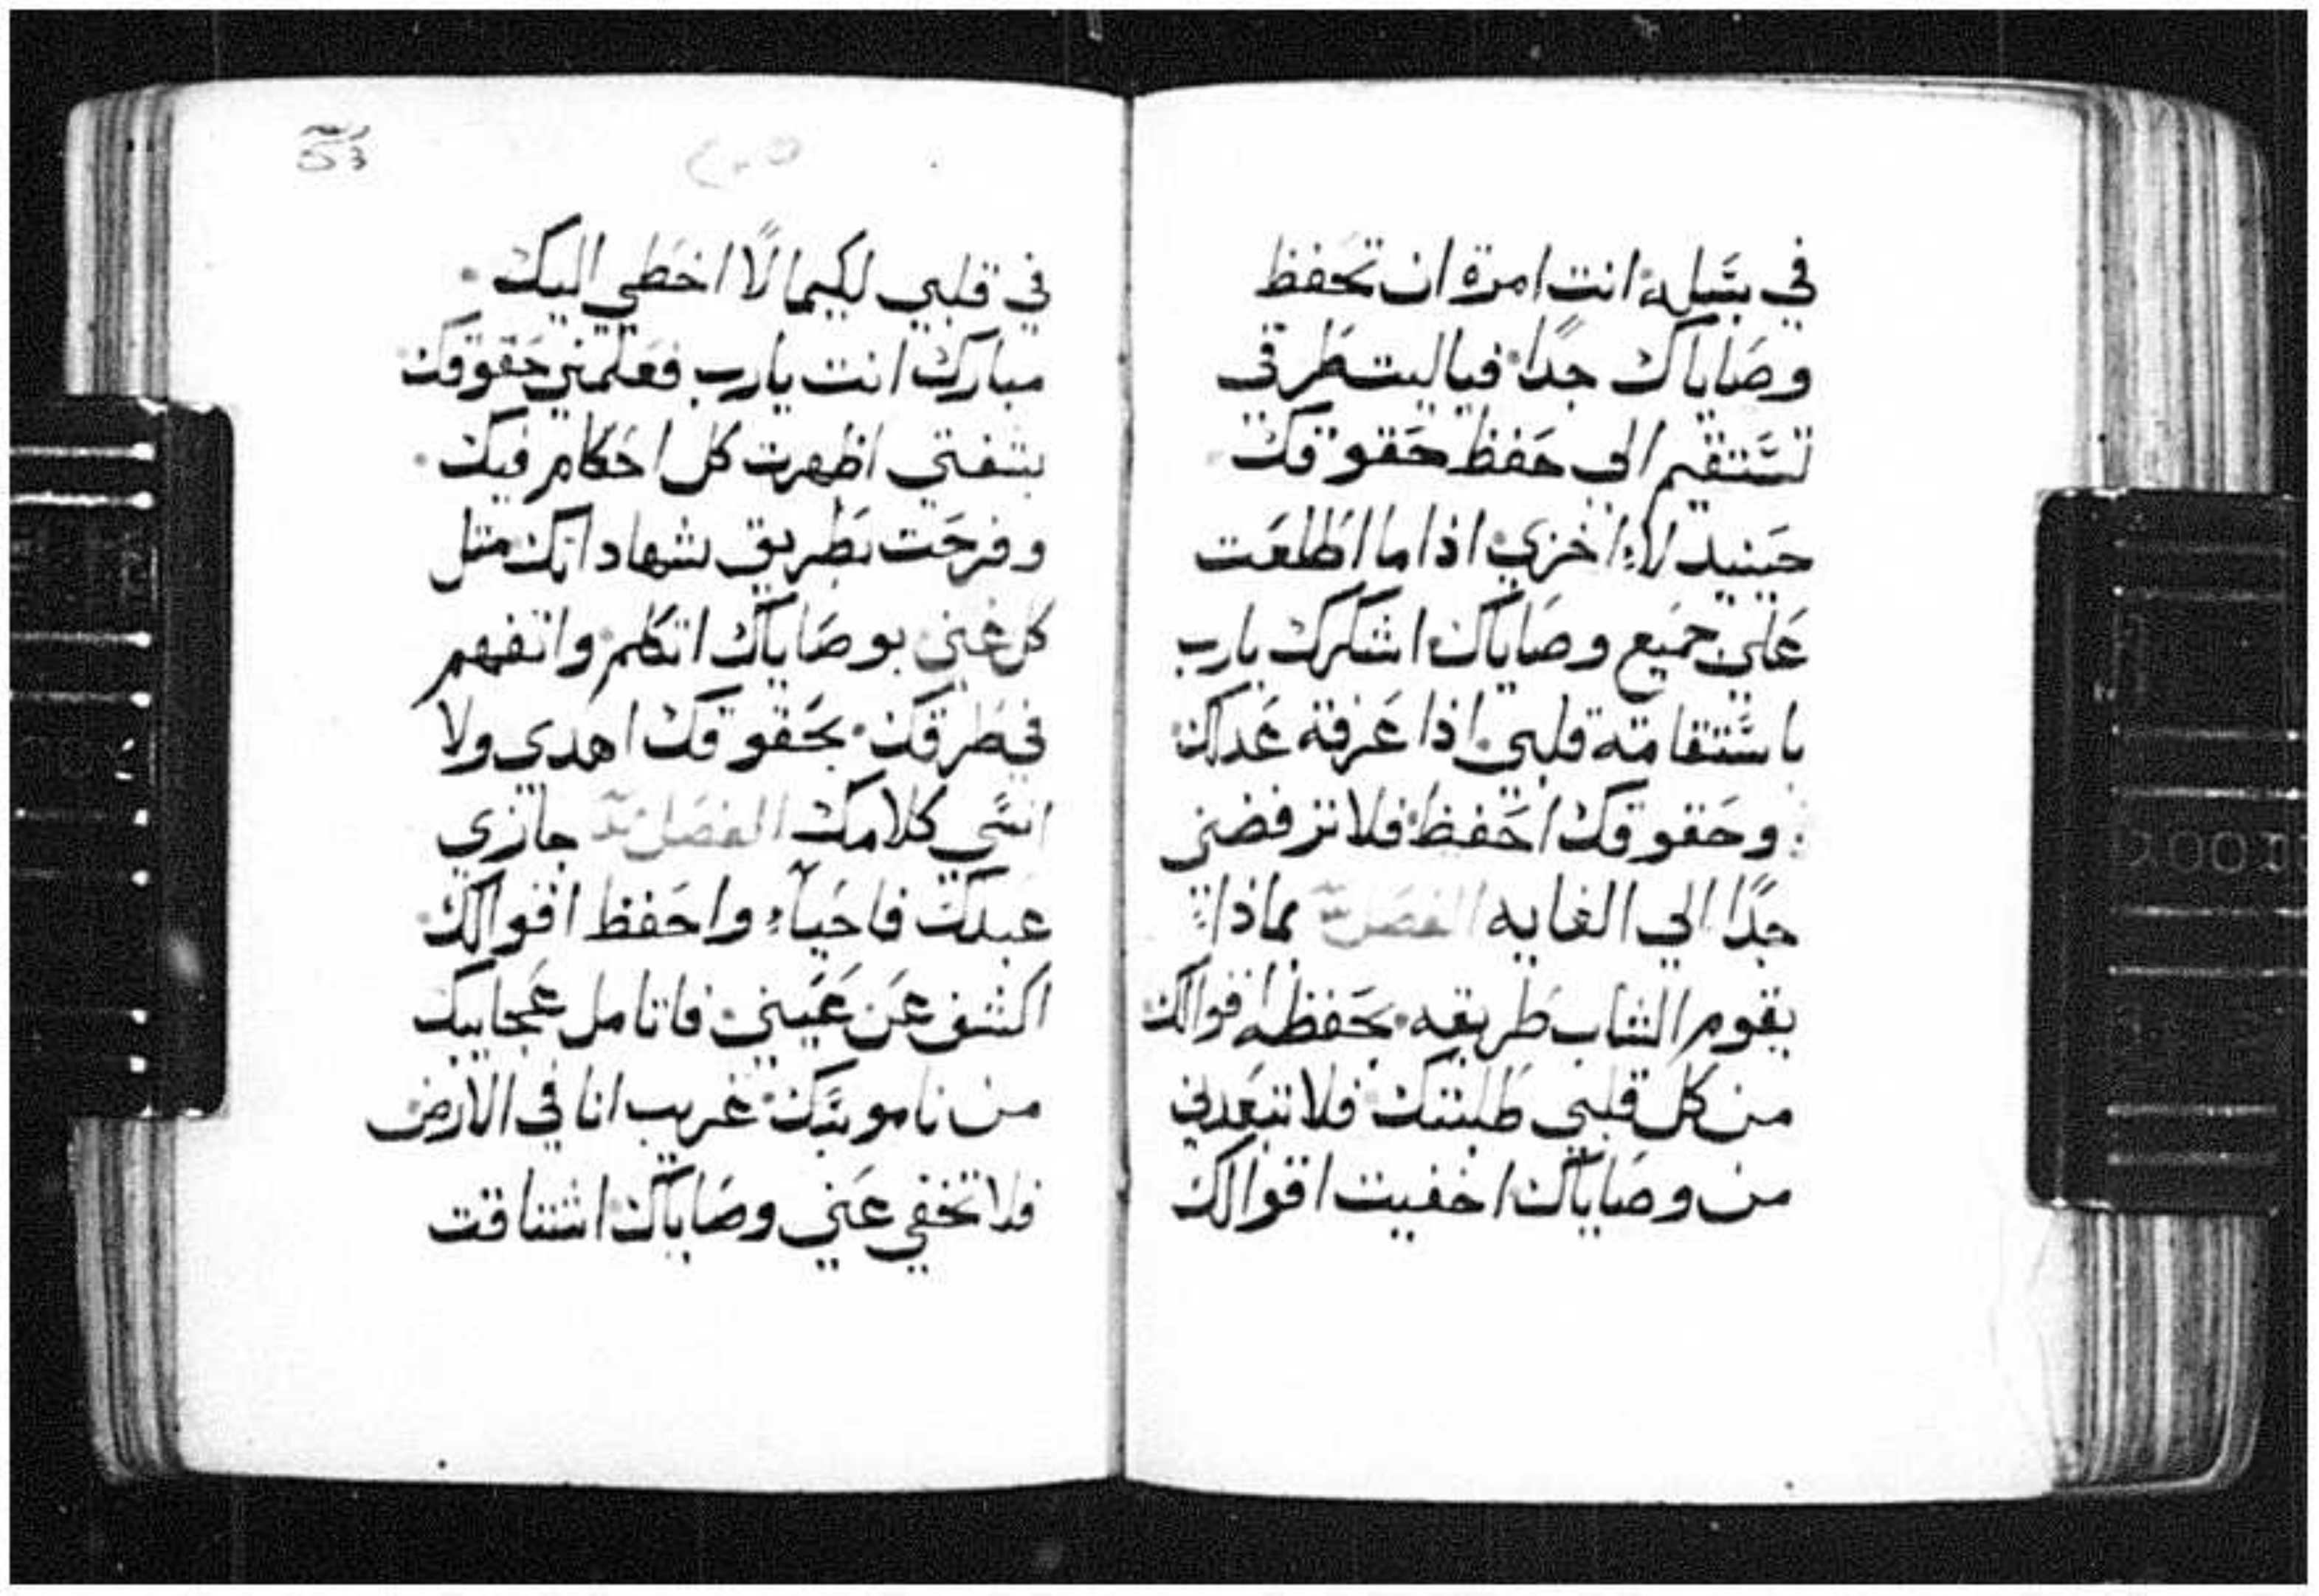 في سبله انت امرة ان تحفظ
وصاياك جدًا فياليت طرقي
تستقيم الي حفظ حقوقك
حينيد لا اخزي اذا ما اطلعت
علي جميع وصاياك اشكرك يارب
باستقامة قلبي اذا عرفة عدلك
وحقوقك احفظ فلا ترفضني
جدًا الي الغايه الفصل بماذا
يقوم الشاب طريقه بحفظه اقوالك
من كل قلبي طلبتك فلا تبعدني
من وصاياك اخفيت اقوالك
في قلبي لكيما لا اخطي اليك
مبارك انت يارب فعلمني حقوقك
بشفتي اظهرت كل احكام فيك
وفرحت بطريق شهاداتك مثل
كل غني بوصاياك اتكلم واتفهم
في طرقك بحقوقك اهدي ولا
انسي كلامك الفصل جازي
عبدك فاحياء واحفظ اقوالك
اكشف عن عيني فاتامل عجايبك
من ناموسك غريب انا في الارض
فلا تخفي عني وصاياك اشتاقت